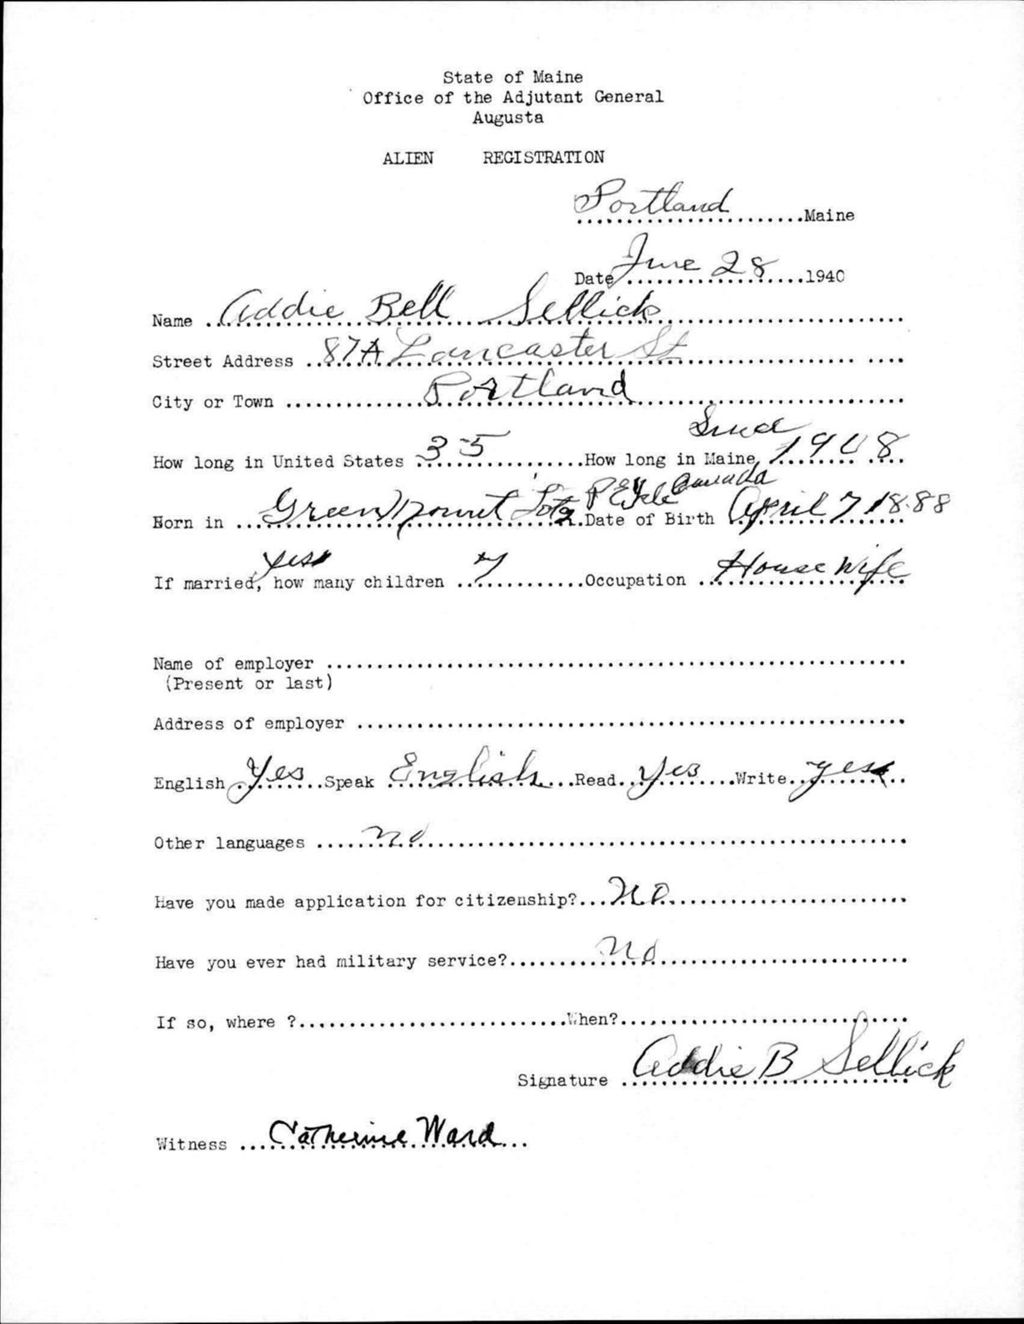 State of Maine
Office of the Adjutant General
Augusta
ALIEN REGISTRATION
Portland Maine
Date June 28 1940
Name Addie Bell Sellick
Street Address 87A Lancaster St
City or Town Portland
How long in United States 35 How long in Maine Since 1908
Born in Green Mount Lot P E Isle Canada Date of Birth April 7 1888
If married, yes how many children 7 Occupation House wife
Name of employer
(Present or last)
Address of employer
English Yes Speak English Read Yes Write yes
Other languages no
Have you made application for citizenship? No
Have you ever had military service? No
If so, where ? When?
Signature Addie B Sellick
Witness Catherine Ward